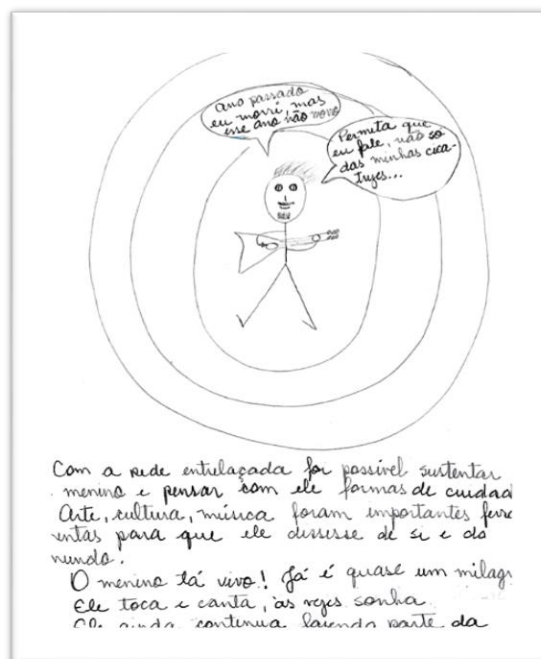 Ano passado
eu morri, mas
esse ano não morro
Permita que
eu fale, não só
das minhas cica-
trizes...
Com a rede entrelaçada foi possível sustentar
menino e pensar com ele formas de cuidad
Arte, cultura, música foram importantes ferra
entas para que ele dissesse de si e do
mundo.
O menino tá vivo! Já é quase um milagr
Ele toca e canta, às vezes sonha.
Ele ainda continua fazendo parte da